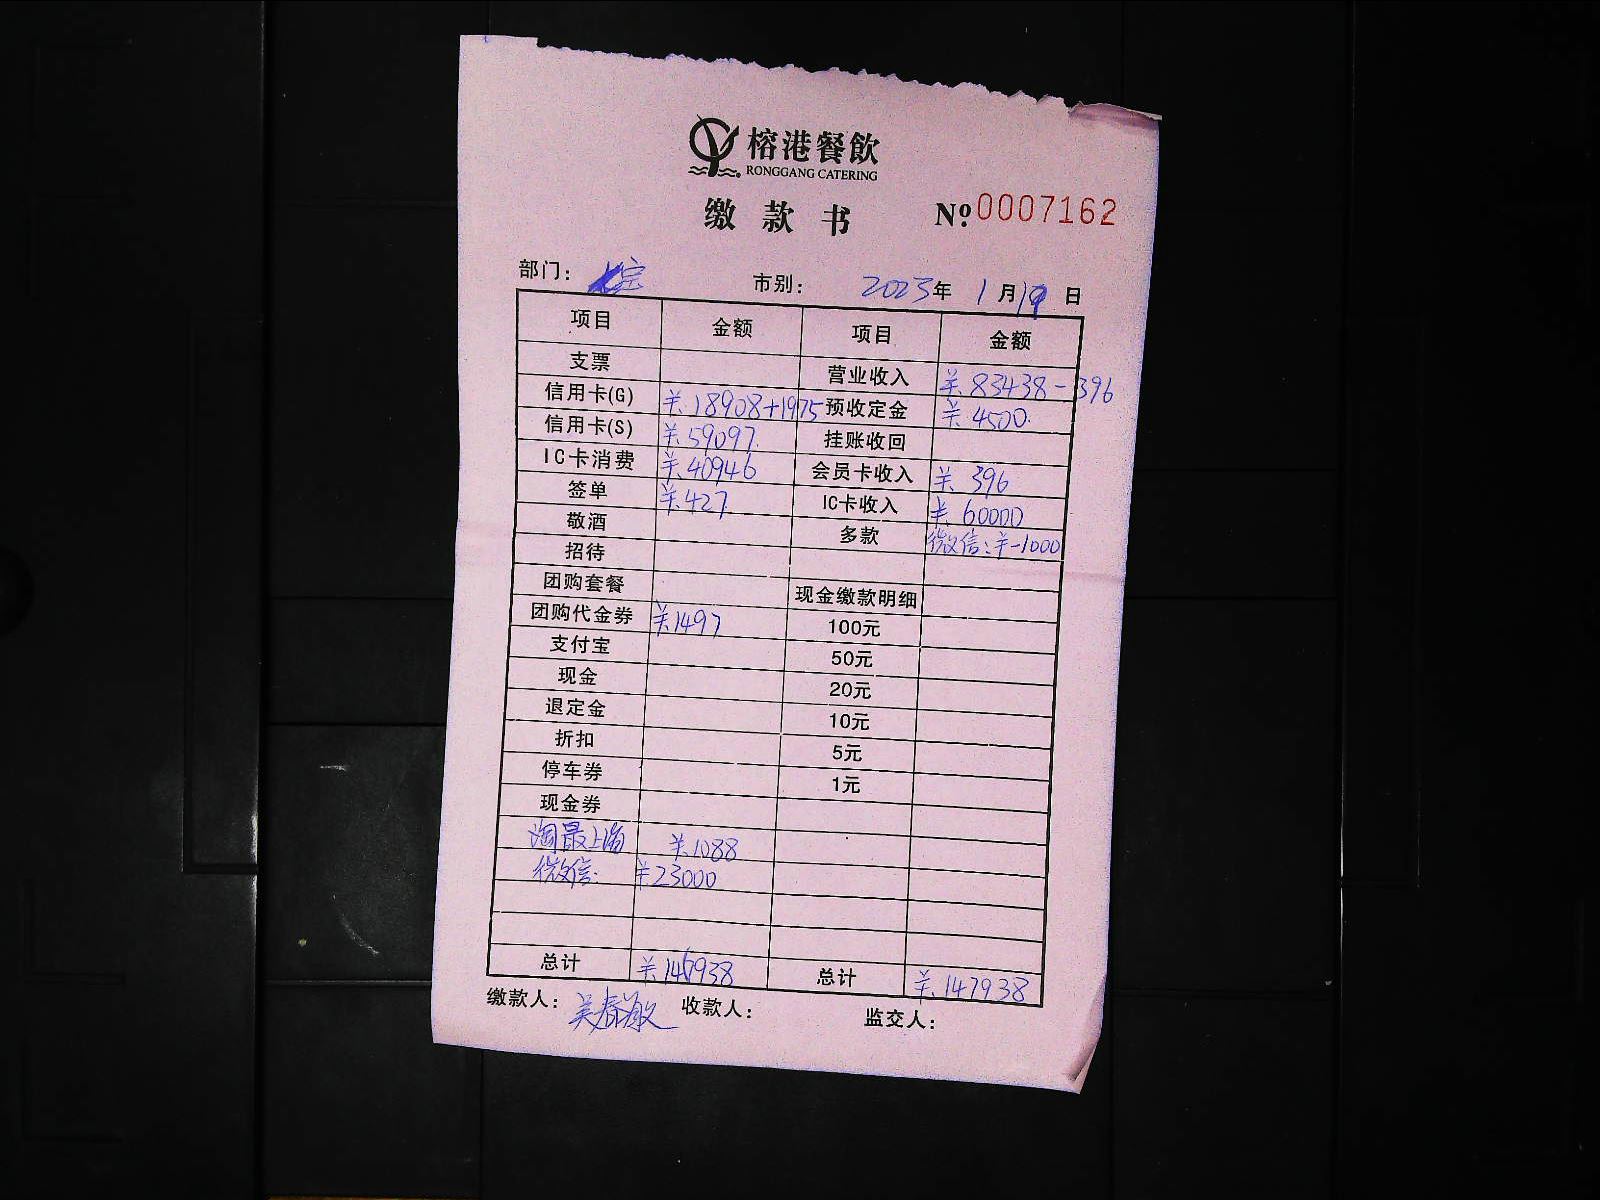 榕港餐飲
RONGGANG CATERING
缴款书 № 0007162
部门: 市别: 2023年 1月19日
项目 金额 项目 金额
支票 营业收入 ¥83438-396
信用卡(G) ¥18908+1975 预收定金 ¥4500
信用卡(S) ¥59097 挂账收回
IC卡消费 ¥40946 会员卡收入 ¥396
签单 ¥427 IC卡收入 ¥60000
敬酒 多款 微信:¥-1000
招待
团购套餐 现金缴款明细
团购代金券 ¥1497 100元
支付宝 50元
现金 20元
退定金 10元
折扣 5元
停车券 1元
现金券
淘最上海 ¥1088
微信 ¥23000
总计 ¥146938 总计 ¥147938
缴款人: 吴春敏 收款人: 监交人: